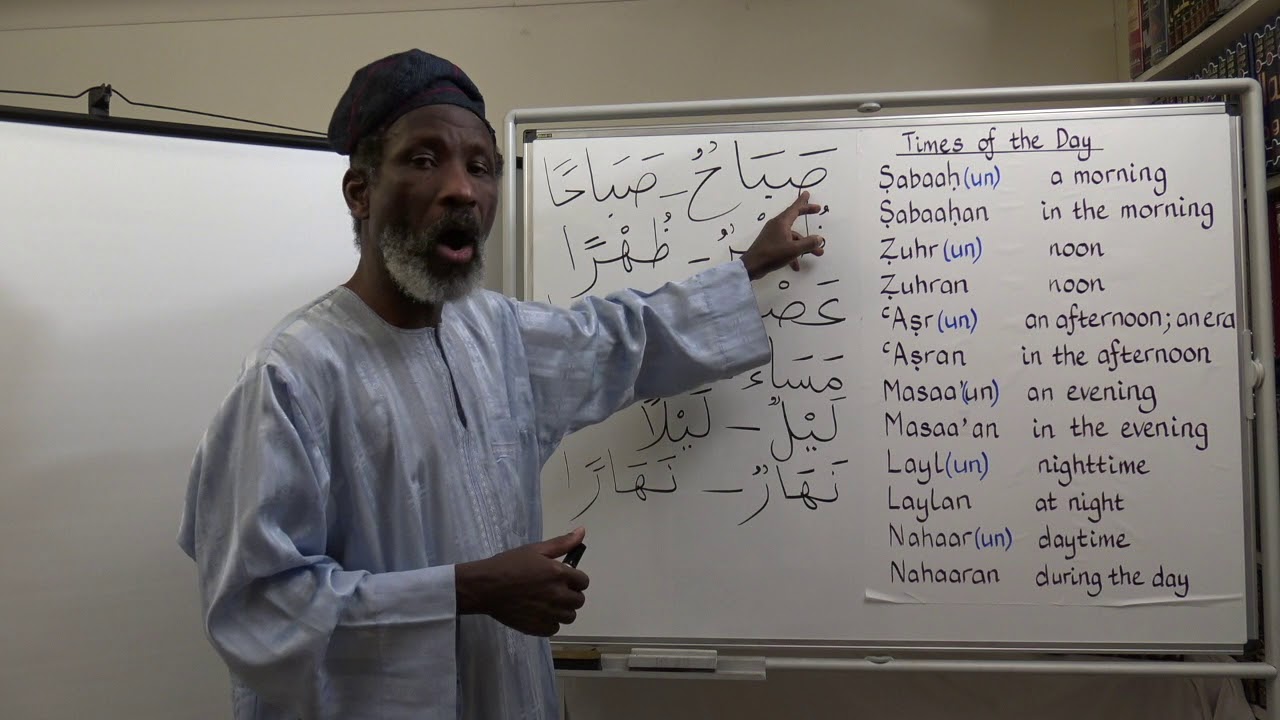 صَبَاحٌ - صَبَاحًا
ظُهْرًا
مَسَاءً
لَيْلٌ - لَيْلًا
نَهَارٌ - نَهَارًا
Times of the Day
Ṣabaaḥ(un) a morning
Ṣabaaḥan in the morning
Ẓuhr(un) noon
Ẓuhran noon
ʿAṣr(un) an afternoon; an era
ʿAṣran in the afternoon
Masaa'(un) an evening
Masaa'an in the evening
Layl(un) nighttime
Laylan at night
Nahaar(un) daytime
Nahaaran during the day